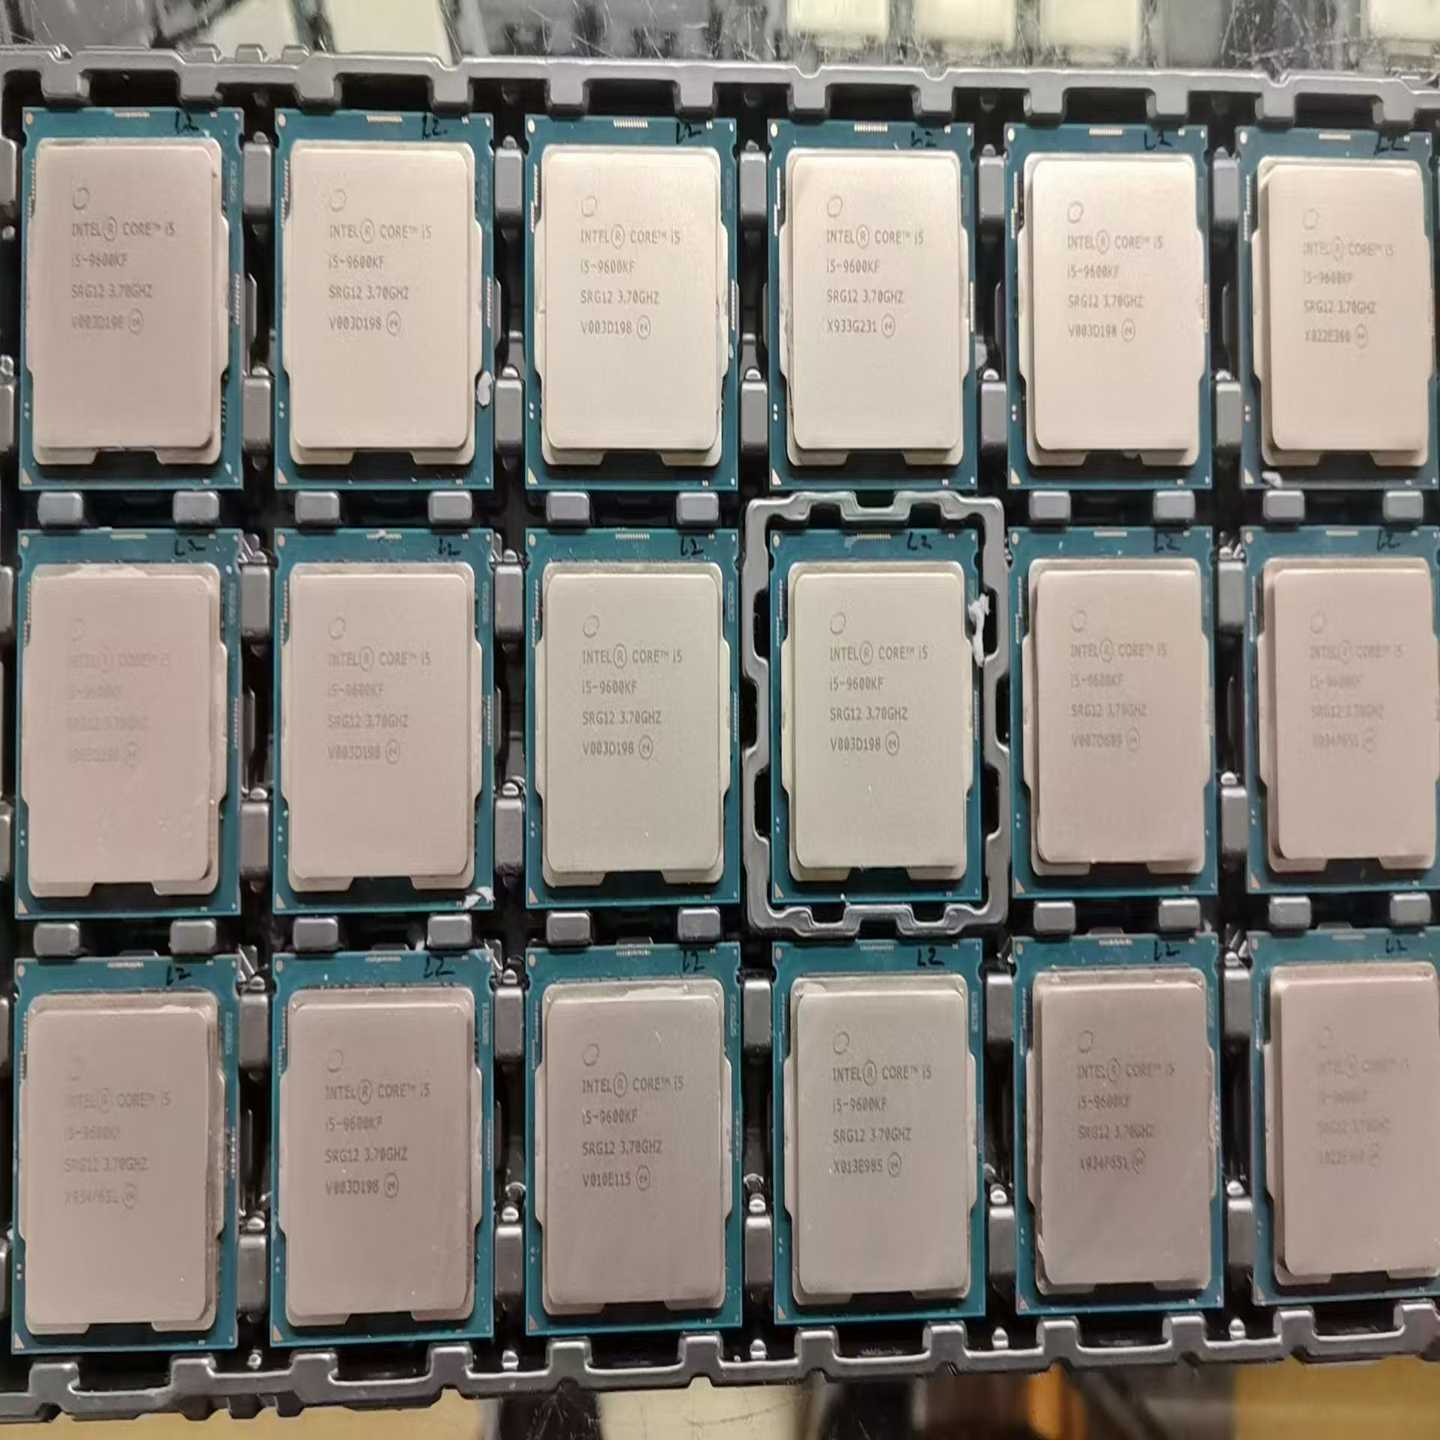 L2
INTEL® CORE™ i5
i5-9600KF
SRG12 3.70GHZ
V003D198 e4
L2
INTEL® CORE™ i5
i5-9600KF
SRG12 3.70GHZ
V003D198 e4
L2
INTEL® CORE™ i5
i5-9600KF
SRG12 3.70GHZ
V003D198 e4
L2
INTEL® CORE™ i5
i5-9600KF
SRG12 3.70GHZ
X933G231 e4
L2
INTEL® CORE™ i5
i5-9600KF
SRG12 3.70GHZ
V003D198 e4
L2
INTEL® CORE™ i5
i5-9600KF
SRG12 3.70GHZ
X022E360 e4
L2
INTEL® CORE™ i5
i5-9600KF
SRG12 3.70GHZ
L2
INTEL® CORE™ i5
i5-9600KF
SRG12 3.70GHZ
V003D198 e4
L2
INTEL® CORE™ i5
i5-9600KF
SRG12 3.70GHZ
V003D198 e4
L2
INTEL® CORE™ i5
i5-9600KF
SRG12 3.70GHZ
V003D198 e4
L2
INTEL® CORE™ i5
i5-9600KF
SRG12 3.70GHZ
e4
L2
INTEL® CORE™ i5
i5-9600KF
SRG12 3.70GHZ
X934P651 e4
L2
INTEL® CORE™ i5
i5-9600KF
SRG12 3.70GHZ
X934P651 e4
L2
INTEL® CORE™ i5
i5-9600KF
SRG12 3.70GHZ
V003D198 e4
L2
INTEL® CORE™ i5
i5-9600KF
SRG12 3.70GHZ
V010E115 e4
L2
INTEL® CORE™ i5
i5-9600KF
SRG12 3.70GHZ
X013E985 e4
L2
INTEL® CORE™ i5
i5-9600KF
SRG12 3.70GHZ
X934P651 e4
L2
INTEL® CORE™ i5
i5-9600KF
SRG12 3.70GHZ